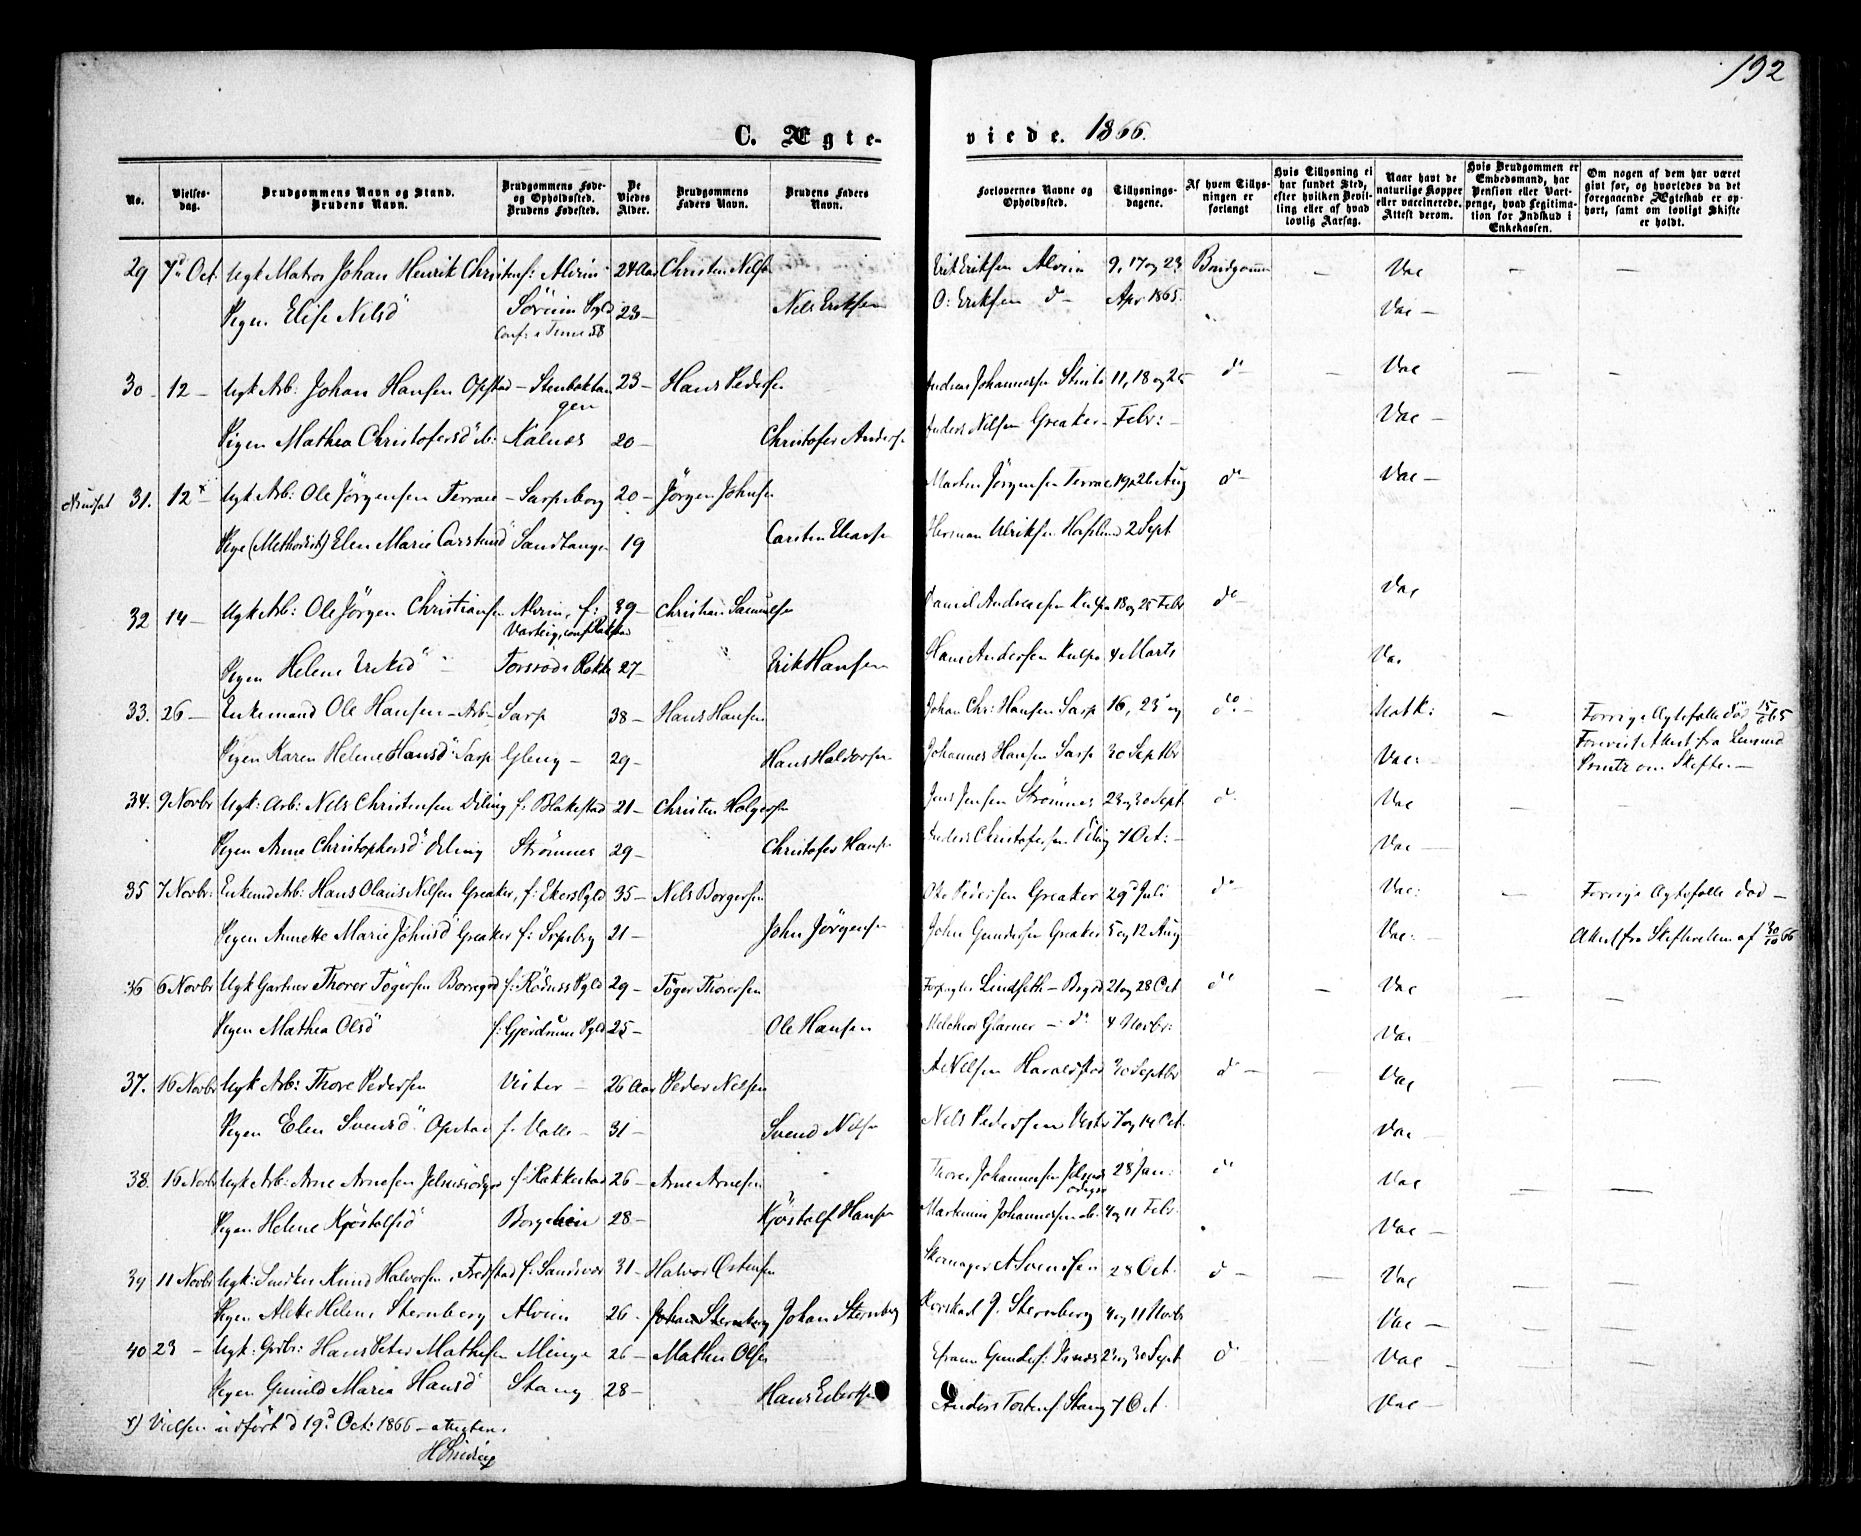 192
C. Ægte-
viede. 1866.
No.
Vielses-
dag.
Brudgommens Navn og Stand.
Brudens Navn.
Brudgommens Føde-
og Opholdssted.
Brudens Fødested.
De
Viedes
Alder.
Brudgommens
Faders Navn.
Brudens Faders
Navn.
Forlovernes Navne og
Opholdssted.
Tillysnings-
dagene.
Af hvem Tillys-
ningen er
forlangt
Hvis Tillysning ei
har fundet Sted,
efter hvilken Bevil-
ling eller af hvad
lovlig Aarsag.
Naar havt de
naturlige Kopper
eller vaccinerede.
Attest derom.
Hvis Brudgommen er
Embedsmand, har
Pension eller Vart-
penge, hvad Legitima-
tion for Indskud i
Enkekassen.
Om nogen af dem har været
givt før, og hvorledes da det
foregaaende Ægteskab er op-
hørt, samt om lovligt Skifte
er holdt.
29 7d Oct. Ugk Matros Johan Henrik Christensf: Alvim 24 Aar Christen Nilsen Erik Eriksen Alvim 9, 17 og 23 Brudgommen – Vac – –
Pigen Elise Nilsd Sørum Pgld 23 – Nels Eriksen O: Eriksen do – Apr. 1865. Vac –
Conf: i Tune 58
30 12 – Ugk Arb: Johan Hansen Opstad – Stenbektan 23 – Hans Pedersen Andreas Johannessen 11, 18 og 25 do – – Vac – –
gen
Pigen Mathea Christofersd do: Kalnes 20 – Christofer Anders Anders Nilsen Greaker – Febr: – Vac –
31. 12 x – Ugk Arb: Ole Jörgensen Terrae – Sarpsborg 20 – Jörgen Johnsen Martin Jörgensen Terrae 19, 26 Aug do – Vac –
Pige (Methodist) Elen Marie Carstensd Sandtangen 19 Carsten Herman Ulriksen Hafslund 2 Sept
32 14 – Ugk Arb: Ole Jörgen Christiansen Alvim, f: 39 – Christian Samuelsen Daniel Andreasen Kulpe 18 og 25 Febr do – Vac
Varteig, conf. Rakkestad
Pigen Helene Eriksd Torsrød i Rakke 27 – Erik Hansen Hans Andersen Kulpe 4 Marts Vac
33. 26 – Enkemand Ole Hansen – Arb – Sarp 38 – Hans Hansen Johan Chr: Hansen Sarp 16, 23 og do. – – Forrige Ægtefælle død 15/6 65
Forevist Attest fra Lensmd
Pigen Karen Helene Hansd Sarp Gleng – 29 – Hans Haldorsen Johannes Hansen Sarp 30 Septbr Vac: – om Skiften –
34. 9 Novbr Ugk: Arb: Nels Christensen f: Blakestad 21 – Christen Holgersen Jens Jensen Strømnes 23 og 30 Sept do Vac –
Pigen Anne Christophersd Strømnes 29 – Christofer Hans Anders Christofersen 7 Oct: – Vac –
35 7 Novbr: Enkemd Arb: Hans Olaus Nilsen Greaker, f: Ekers Pgld 35 – Nels Borgersen Ole Pedersen Greaker 29d Juli do – Vac: – Forrige Ægtefælle død –
Pigen Annette Marie Johnsd Greaker f: Spsbrg 21 – John Jörgensen John Gundersen Greaker 5 og 12 Aug Vac: – Attest fra Skifteretten af 30/10 66
36 6 Novbr Ugk Gartner Thorer Tögersen Borregrd f: Rödnes Pgld 29 – Töger Thorersen Lindseth – Brgrd 21 og 28 Oct do – Vac – –
Pigen Mathea Olsd f: Gjerdrum Pgld 25 – Ole Hansen Melchior Glarner – do 4 Novbr: Vac –
37. 16 Novbr Ugk Arb: Thore Pedersen Vister – 26 Aar Peder Nelsen A. Nelsen Haraldstad 30 Septbr do – – Vac – –
Pigen Elen Svensd Opstad f. Valle – 31 – Svend Nilsen Nels Pedersen Vister 7 og 14 Oct. Vac –
38. 16 Novbr Ugk Arb: Arne Arnesen f: Rakkestad 26 – Arne Arnesen Thorer Johannesen 28 Jan: do Vac – –
Pigen Helene Kjöstolfsd Borgehein 28 – Kjöstolf Hansen Martinius Johannessen do. 4 og 11 Febr. Vac –
39 11 Novbr Ugk: Knud Halvorsen, Fredstad f: Sandsvær 31 – Halvor Ostensen Skomager A Svensen 28 Oct. do – – Vac – –
Pigen Alette Helene Sternberg Alvim 26 – Johan Sternberg Johan Sternberg J. Sternberg 4 og 11 Novbr Vac – –
40 23 – Ugk: Grdbr: Hans Peter Mathisen Minge 26 – Mathis Olsen Efraim Gunders: 23 og 30 Sept do – Vac – –
Pigen Gunild Maria Hansd Stang 28 – Hans Anders Torstens Stang 7 Oct. Vac –
x) Vielsen udført d 19d Oct: 1866 – attesteres.